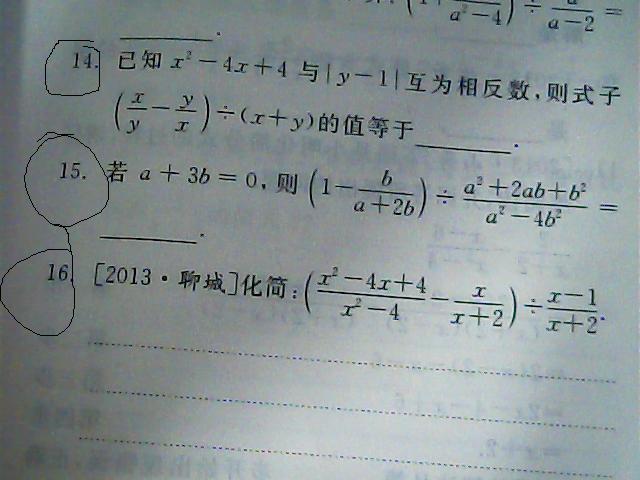 a²-4 ) ÷ a-2 =
______.
14. 已知 x²-4x+4 与|y-1|互为相反数,则式子
(x/y - y/x)÷(x+y)的值等于______.
15. 若 a+3b=0,则 (1 - b/(a+2b)) ÷ (a²+2ab+b²)/(a²-4b²) =
______.
16. [2013·聊城]化简:((x²-4x+4)/(x²-4) - x/(x+2)) ÷ (x-1)/(x+2).